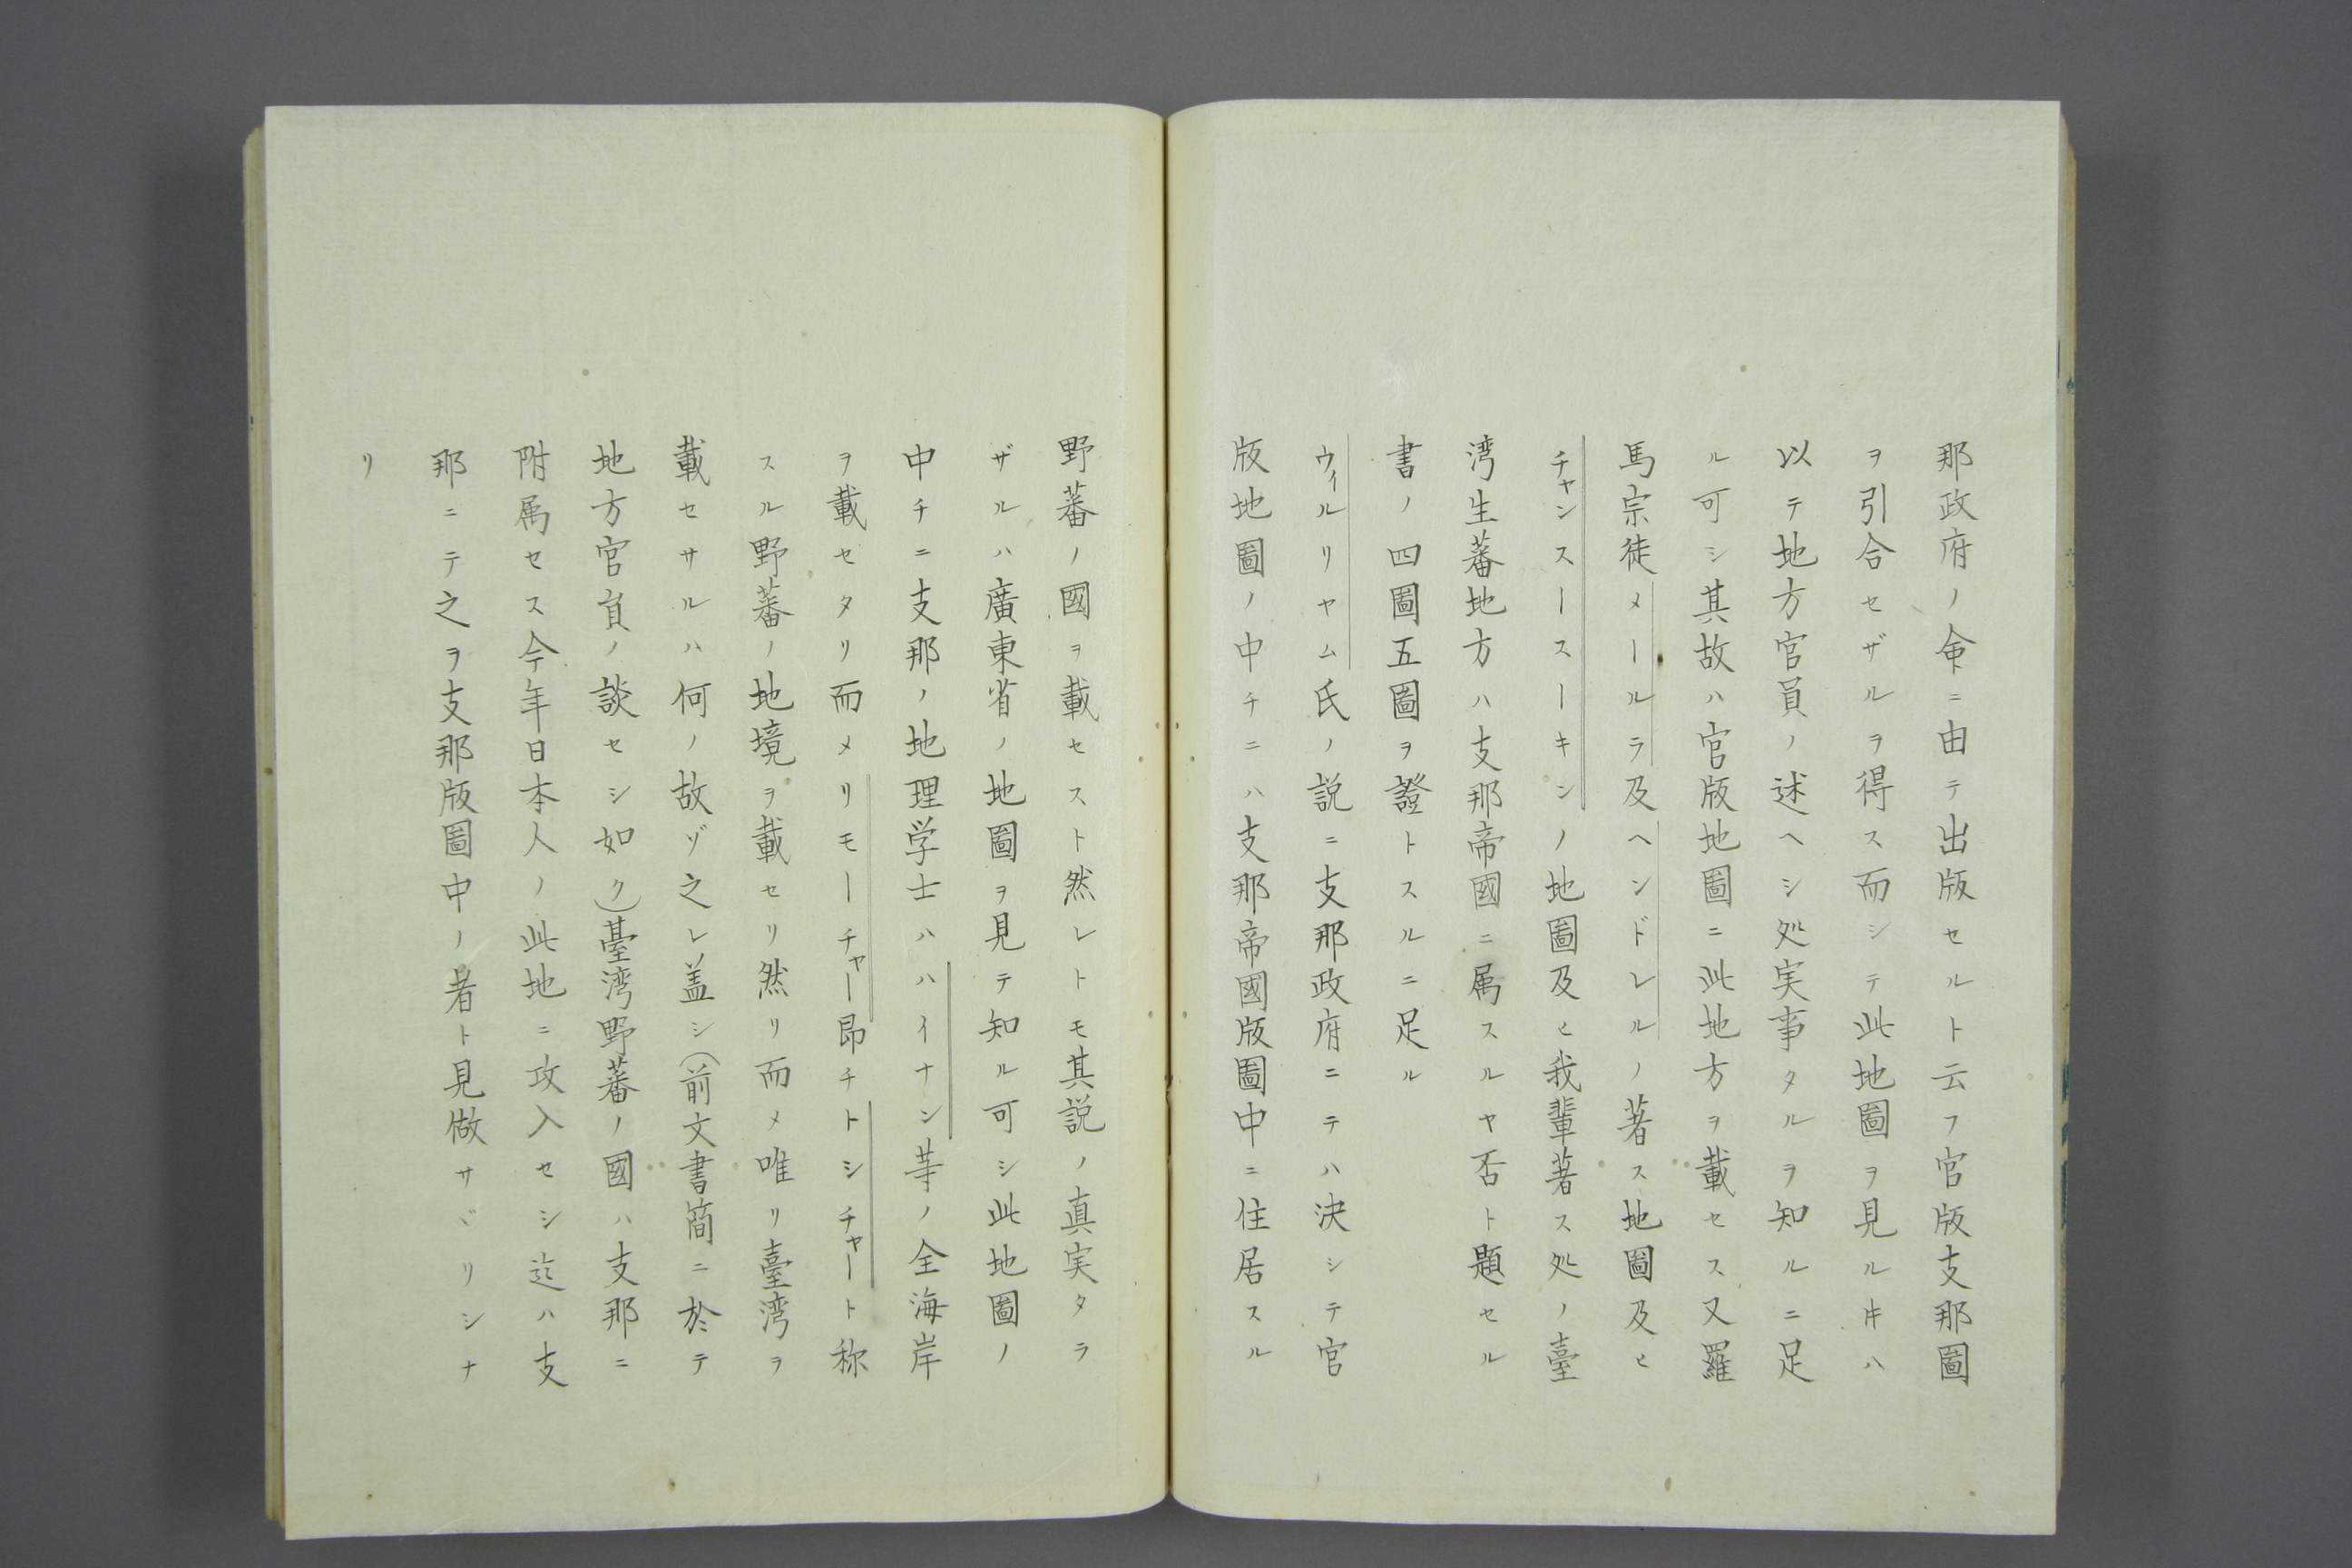 那政府ノ命ニ由テ出版セルト云フ官版支那圖
ヲ引合セザルヲ得ス而シテ此地圖ヲ見ルヰハ
以テ地方官員ノ述ヘシ処実事タルヲ知ルニ足
ル可シ其故ハ官版地圖ニ此地方ヲ載セス又羅
馬宗徒メールラ及ヘンドレルノ著ス地圖及ヒ
チャンスースーキンノ地圖及ヒ我輩著ス処ノ臺
湾生蕃地方ハ支那帝國ニ属スルヤ否ト題セル
書ノ四圖五圖ヲ證トスルニ足ル
ウィルリヤム氏ノ説ニ支那政府ニテハ決シテ官
版地圖ノ中チニハ支那帝國版圖中ニ住居スル
野蕃ノ國ヲ載セスト然レトモ其説ノ真実タラ
ザルハ廣東省ノ地圖ヲ見テ知ル可シ此地圖ノ
中チニ支那ノ地理学士ハハイナン䒭ノ全海岸
ヲ載セタリ而メリモーチャー昂チトシチャート称
スル野蕃ノ地境ヲ載セリ然リ而メ唯リ臺湾ヲ
載セサルハ何ノ故ゾ之レ盖シ(前文書簡ニ於テ
地方官員ノ談セシ如ク)臺湾野蕃ノ國ハ支那ニ
附属セス今年日本人ノ此地ニ攻入セシ迄ハ支
那ニテ之ヲ支那版圖中ノ者ト見做サヾリシナ
リ